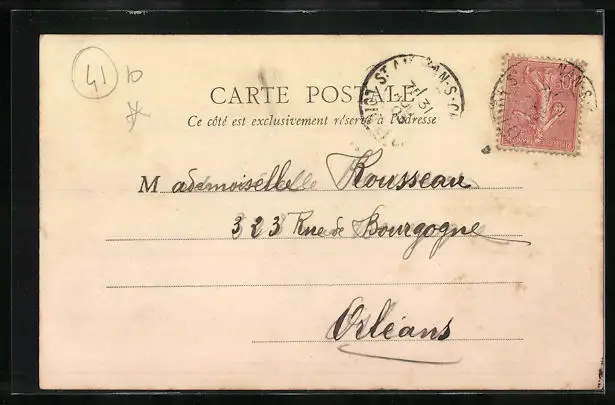 41 10
CARTE POSTALE
Ce côté est exclusivement réservé à l'adresse
Mademoiselle Rousseau
323 Rue de Bourgogne
Orléans